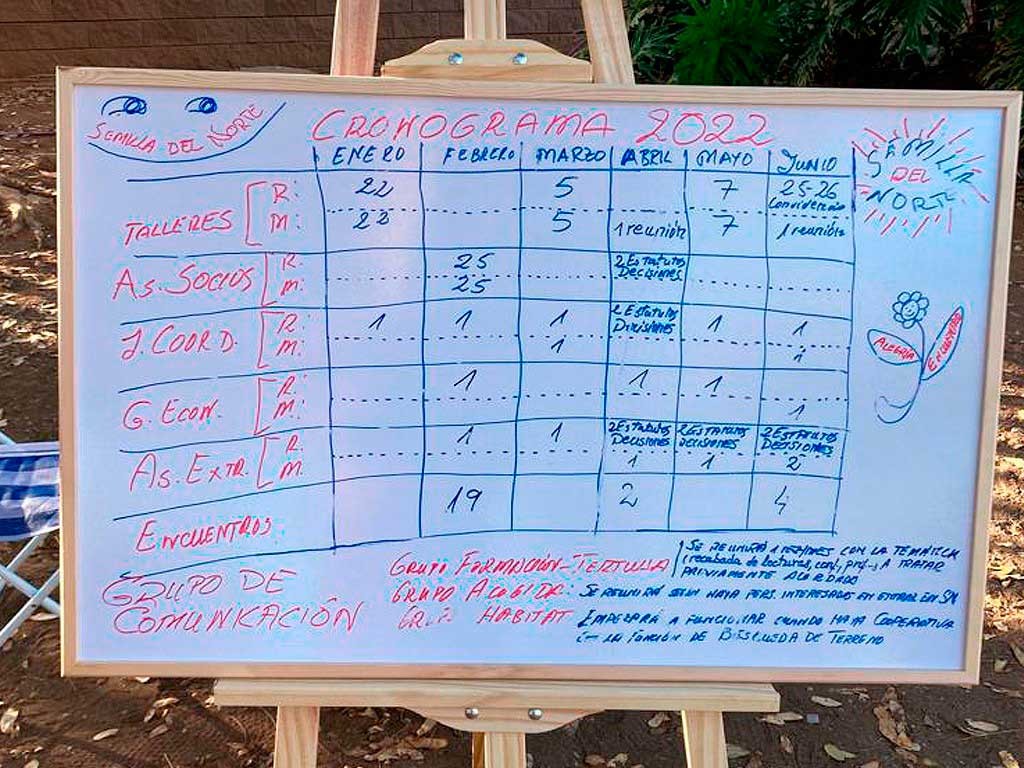 SEMILLA DEL NORTE
CRONOGRAMA 2022
SEMILLA
DEL
NORTE
ENERO FEBRERO MARZO ABRIL MAYO JUNIO
TALLERES
R: 22 5 7 25-26 Convivencia
M: 22 5 1 reunión 7 1 reunión
As. SOCIOS
R: 25 2 ESTATUTOS DECISIONES
M: 25
J. COORD.
R: 1 1 1 2 ESTATUTOS DECISIONES 1 1
M: 1 1
G. ECON.
R: 1 1 1
M: 1
As. EXTR.
R: 1 1 2 ESTATUTOS DECISIONES 2 ESTATUTOS DECISIONES 2 ESTATUTOS DECISIONES
M: 1 1 2
ENCUENTROS 19 2 4
ALEGRÍA
ENCUENTROS
GRUPO DE
COMUNICACIÓN
GRUPO FORMACIÓN-TERTULIA
SE REUNIRÁ 1 VEZ/MES CON LA TEMÁTICA
(recabada de lecturas, conf, prof..) A TRATAR
PREVIAMENTE ACORDADO
GRUPO ACOGIDA: SE REUNIRÁ SEGÚN HAYA PERS. INTERESADAS EN ENTRAR EN SN
GRUPO HABITAT EMPEZARÁ A FUNCIONAR CUANDO HAYA COOPERATIVA
LA FUNCIÓN DE BÚSQUEDA DE TERRENO